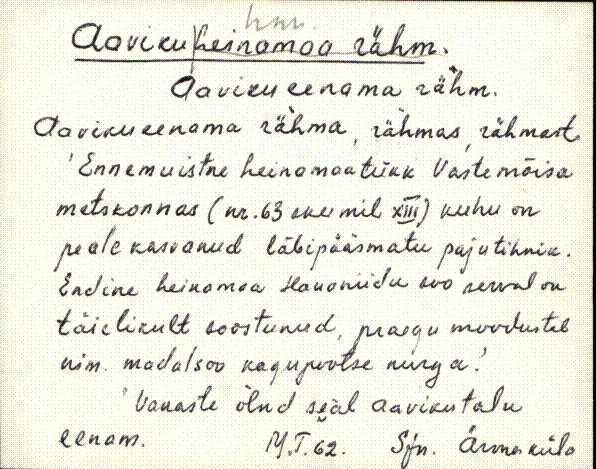 hnr.
Aaviku|heinamaa rähm.
Aavikueenama rähm.
Aavikueenama rähma, rähmas, rähmast
'Ennemuistne heinamaatükk Vastemõisa
metskonnas (nr. 63 skeemil XIII) kuhu on
peale kasvanud läbipääsmatu pajutihnik.
Endine heinamaa soo serval on
täielikult soostunud, praegu moodustab
nim. madalsoo kagupoolse nurga.'
'Vanaste õlnd seäl Aavikutalu
eenam. M.T. 62. Sjn.